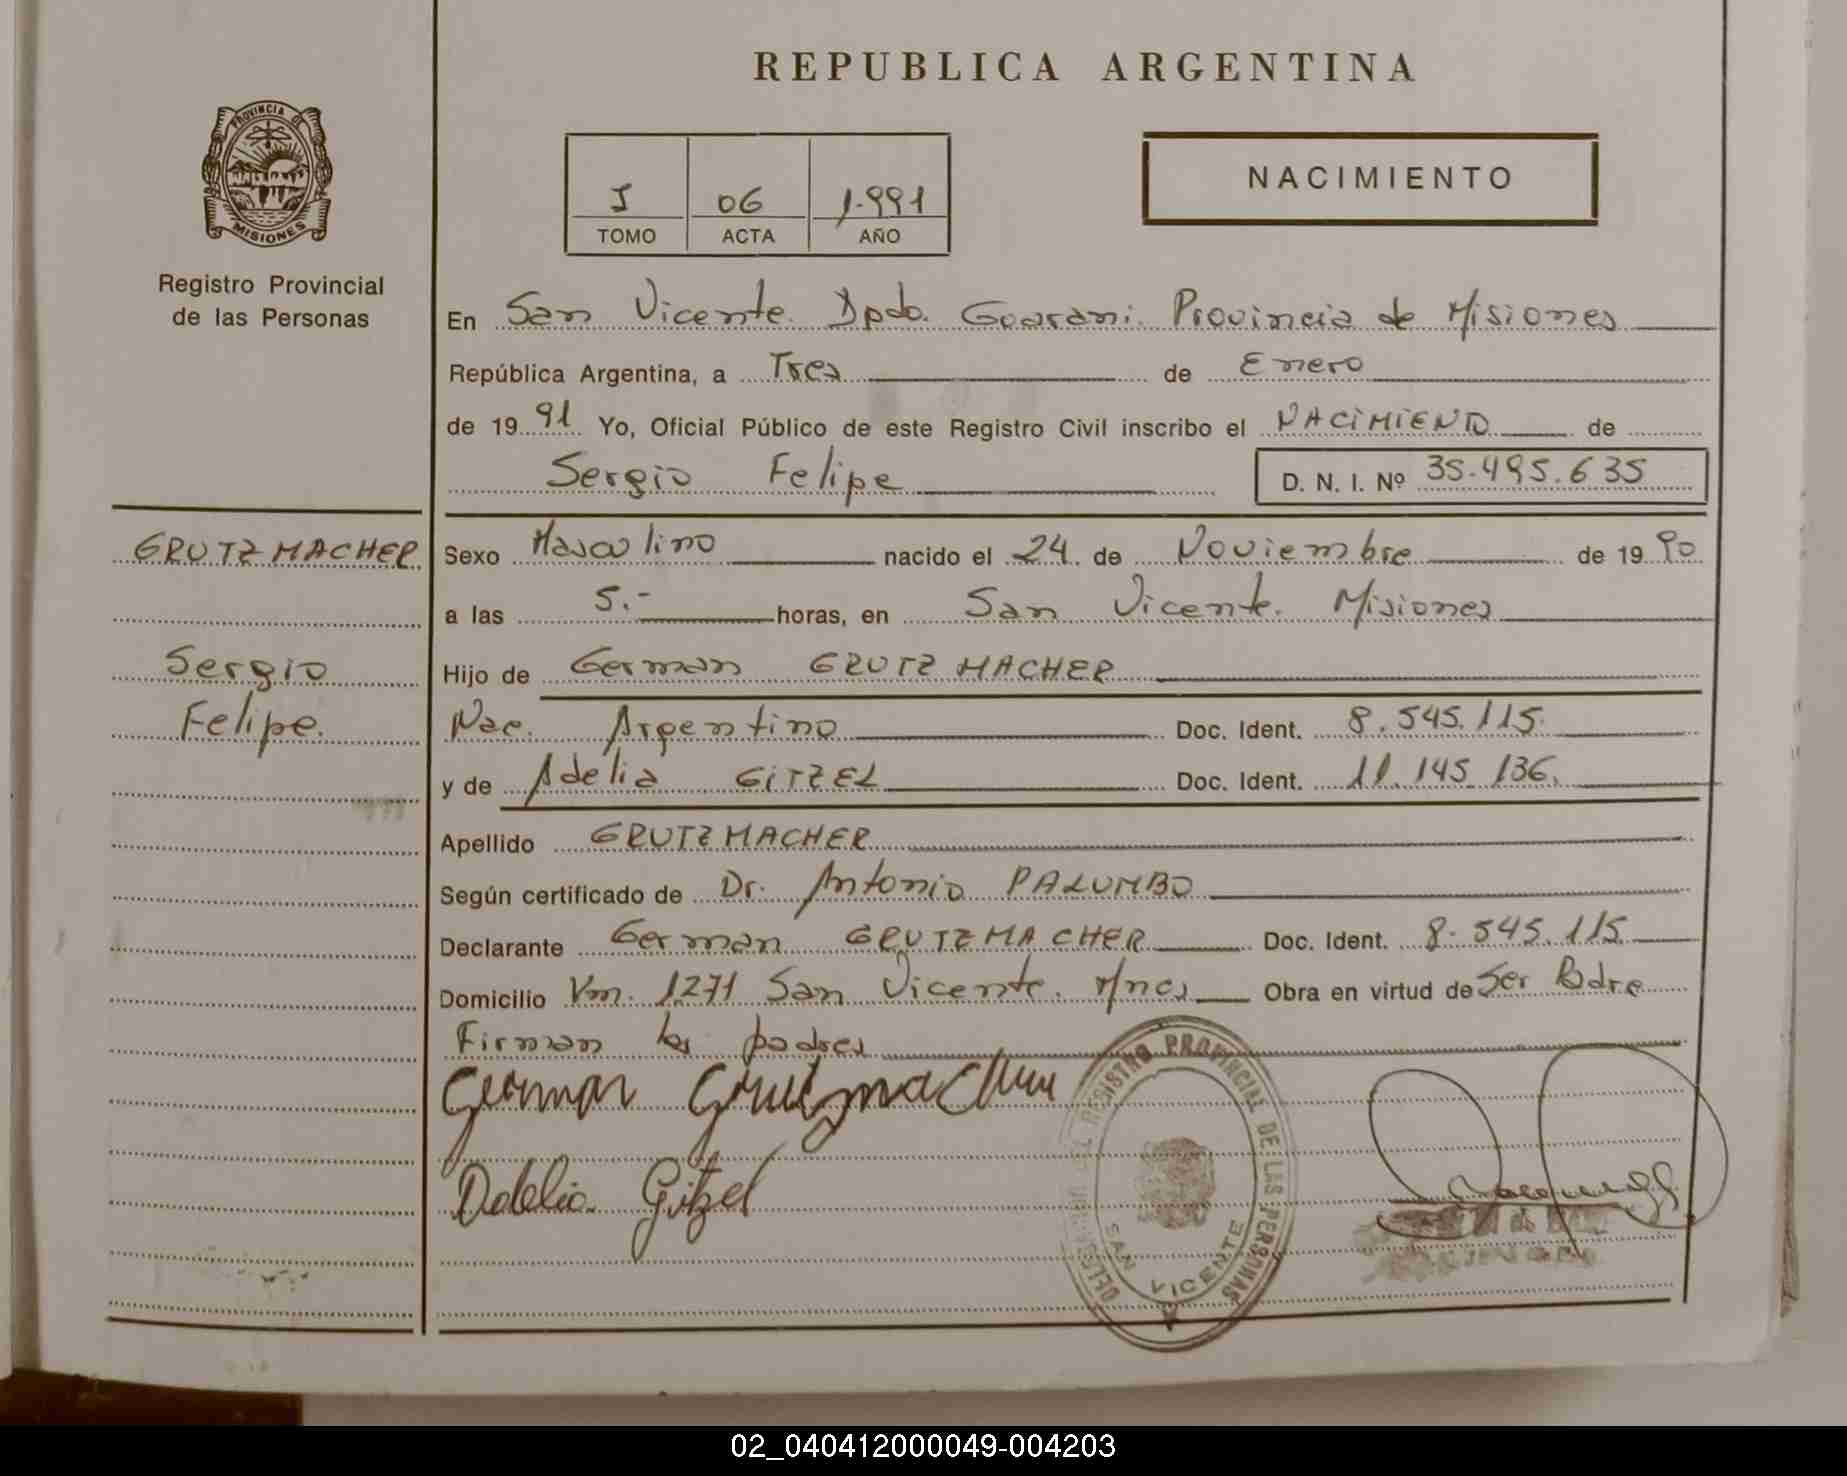 REPUBLICA ARGENTINA
PROVINCIA DE
MISIONES
Registro Provincial
de las Personas
I 06 1.991
TOMO ACTA AÑO
NACIMIENTO
En San Vicente. Dpdo. Guarani. Provincia de Misiones
República Argentina, a Tres de Enero
de 1991 Yo, Oficial Público de este Registro Civil inscribo el NACIMIENTO de
Sergio Felipe D. N. I. Nº 35.495.635
GRUTZMACHER
Sergio
Felipe.
Sexo Masculino nacido el 24 de Noviembre de 1990
a las 5.- horas, en San Vicente. Misiones
Hijo de German GRUTZMACHER
Nac. Argentino Doc. Ident. 8.545.115.
y de Adelia GITZEL Doc. Ident. 11.145.136.
Apellido GRUTZMACHER
Según certificado de Dr. Antonio PALUMBO
Declarante German GRUTZMACHER Doc. Ident. 8.545.115
Domicilio Km. 1271 San Vicente. Mnes Obra en virtud de Ser Padre
Firman los padres
German Grutzmacher
Adelia Gitzel
DELEGACION DEL REGISTRO PROVINCIAL DE LAS PERSONAS
SAN VICENTE
02_040412000049-004203